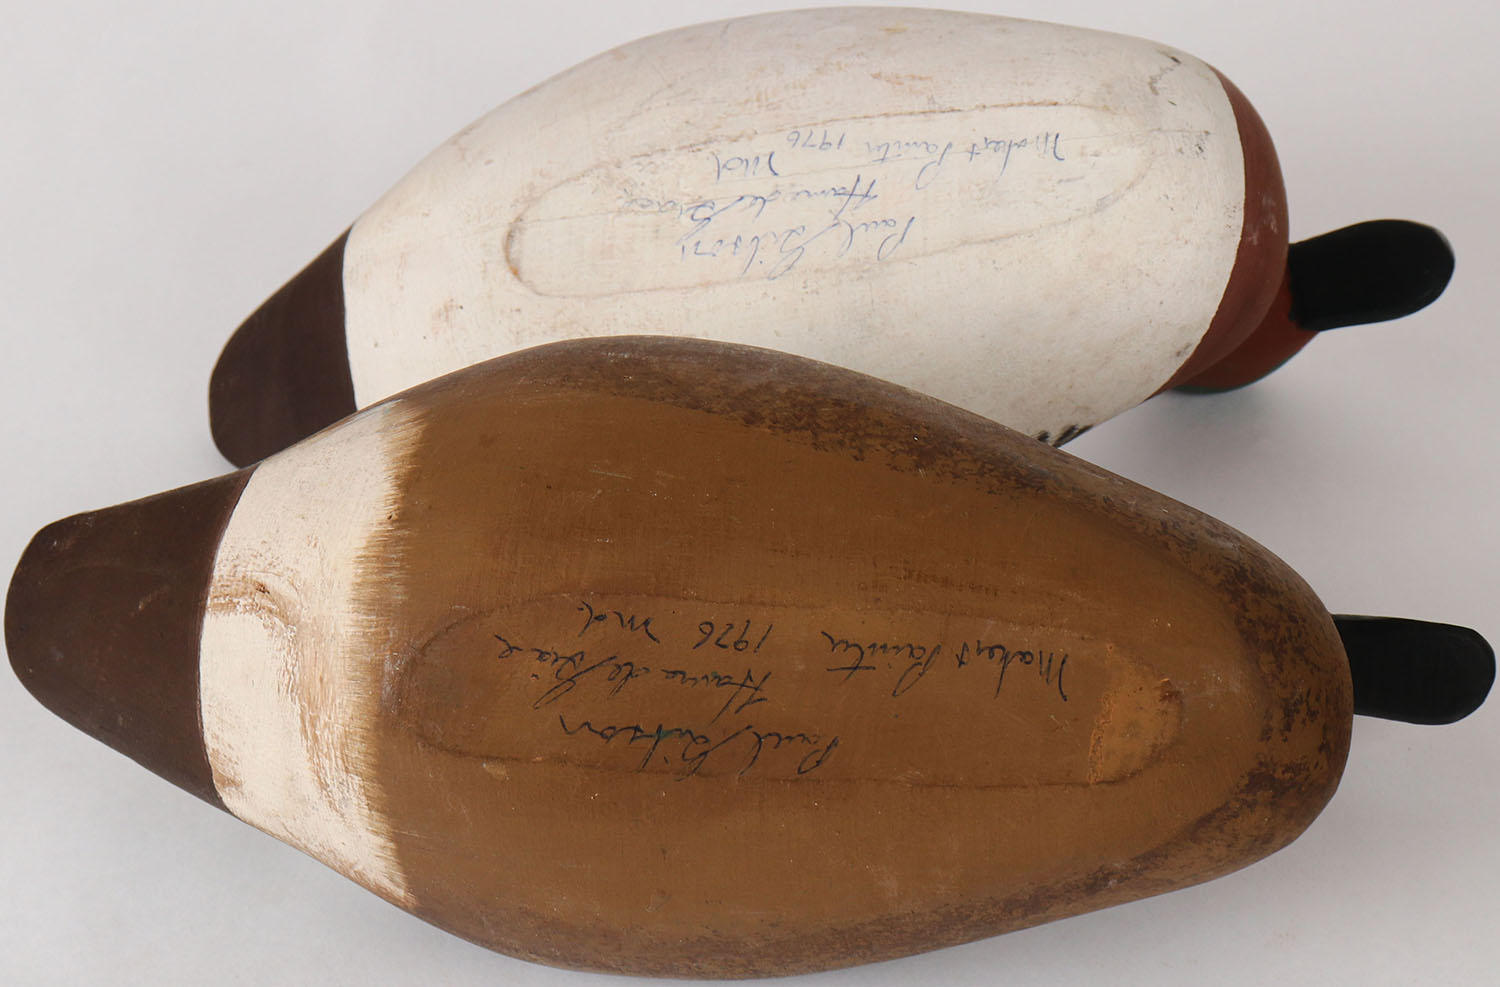 Paul Gibson
Havre de Grace
Md
Maker & Painter 1976
Paul Gibson
Havre de Grace
Maker & Painter 1976 Md.